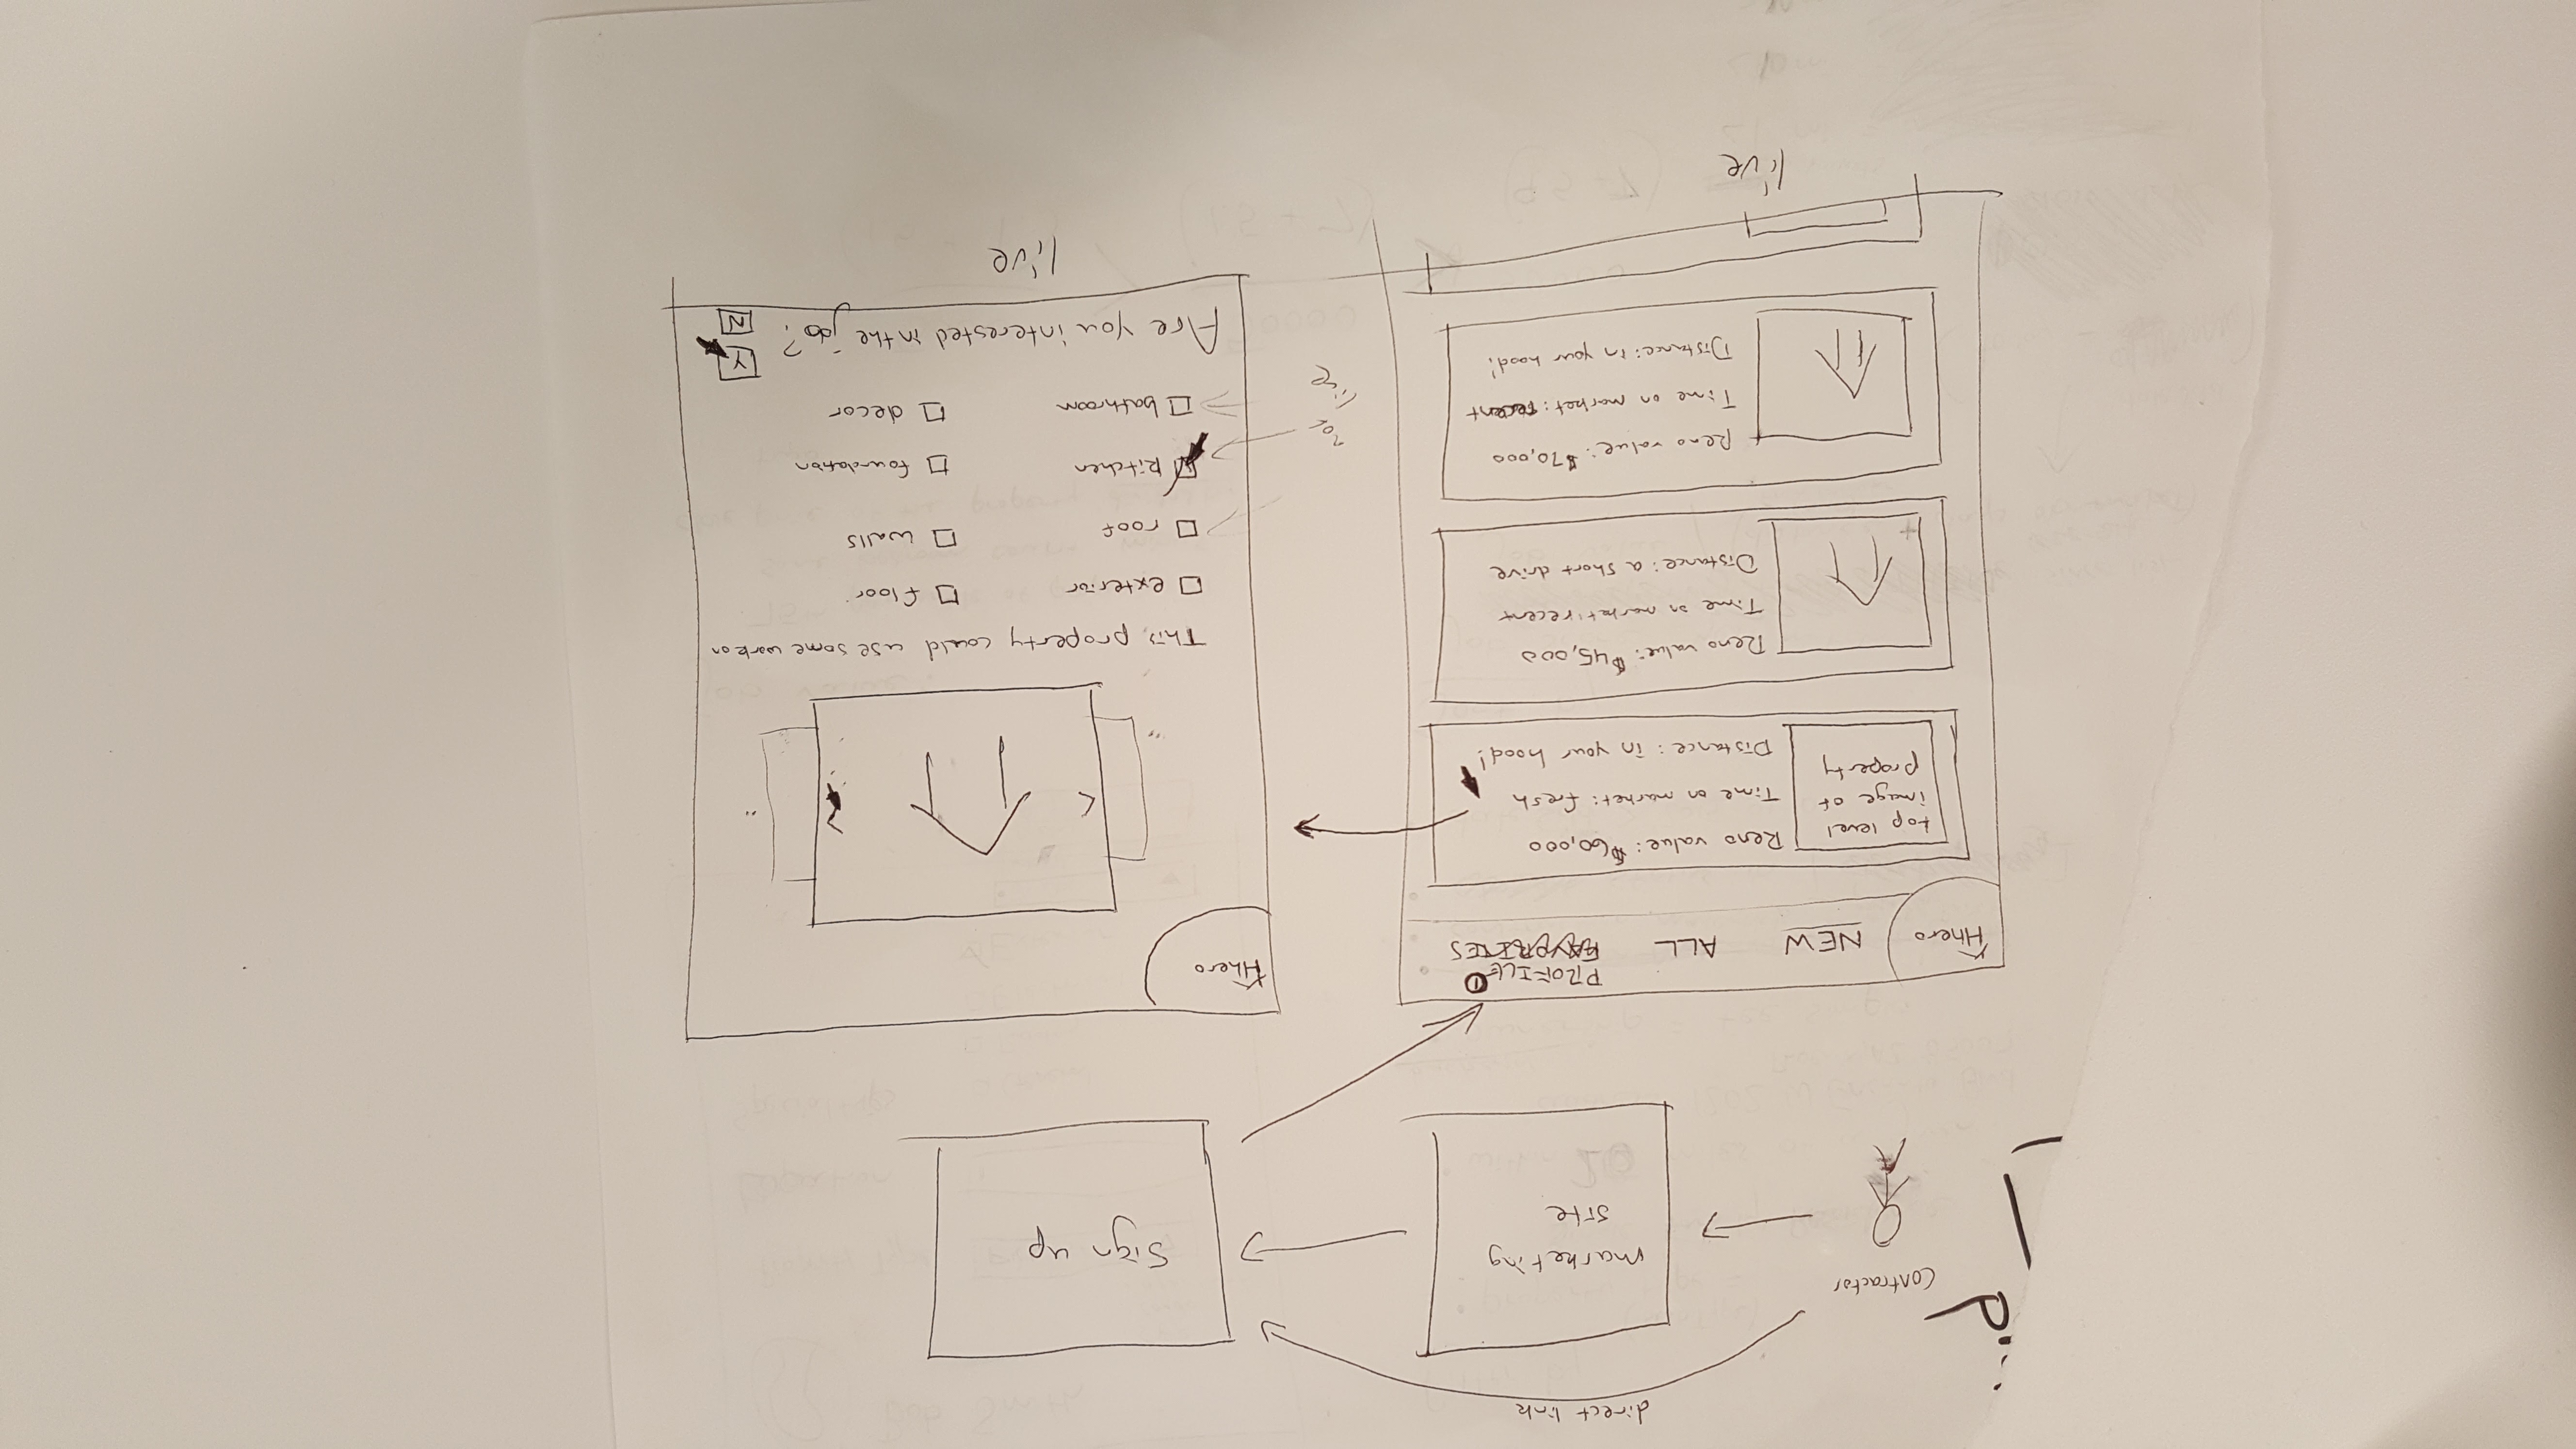 contractor
direct link
marketing
site
Sign up
Hhero
NEW
ALL
PROFILE 1
FAVORITES
top level
image of
property
Reno value: $60,000
Time on market: fresh
Distance: in your hood!
Reno value: $45,000
Time on market: recent
Distance: a short drive
Reno value: $70,000
Time on market: recent
Distance: in your hood!
live
Hhero
This property could use some work on
exterior
floor
roof
walls
kitchen
foundation
bathroom
decor
Are you interested in the job?
Y
N
live